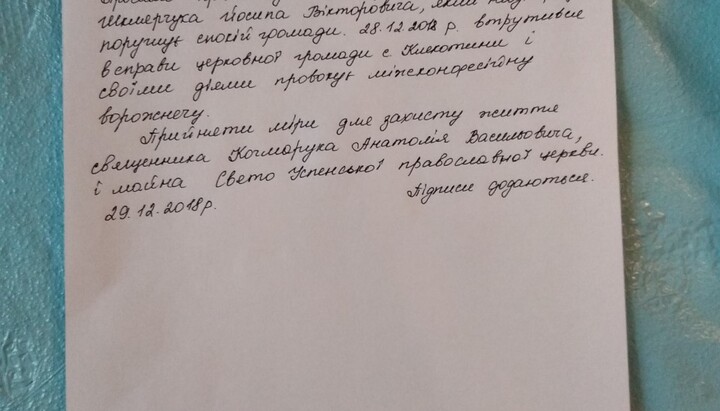 Шкмерчука Йосипа Вікторовича, який
поручнує спокій громади. 28.12.2018 р. втрутився
в справи церковної громади с Клекотини і
своїми діями провокує міжконфесійну
ворожнечу.
Прийняти міри для захисту життя
священника Кочмарука Анатолія Васильовича,
і майна Свето Успенської православної церкви.
29.12.2018р. Підписи додаються.